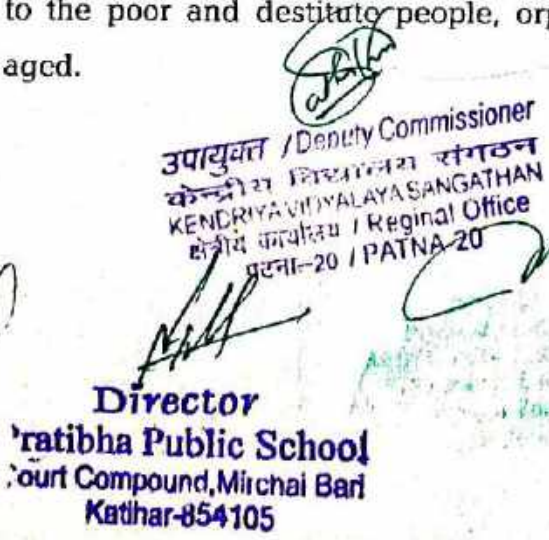 to the poor and destitute people, orp
aged.
उपायुक्त / Deputy Commissioner
केन्द्रीय विद्यालय संगठन
KENDRIYA VIDYALAYA SANGATHAN
क्षेत्रीय कार्यालय / Reginal Office
पटना-20 / PATNA-20
Director
Pratibha Public School
Court Compound, Mirchai Bari
Katihar-854105